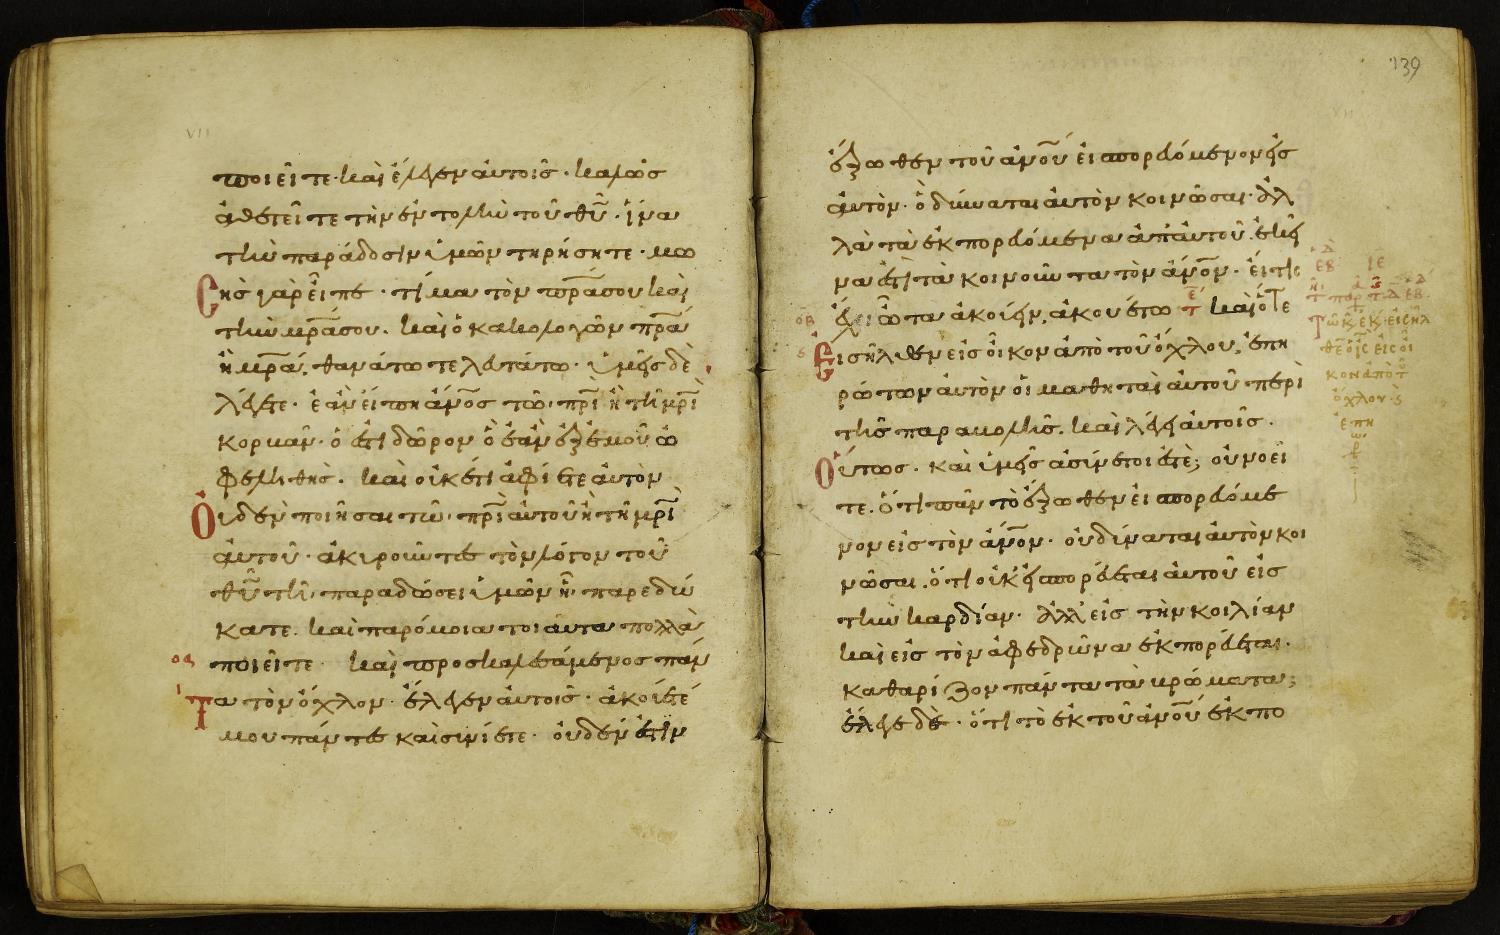 VII
ποιεῖτε· καὶ ἔλεγεν αὐτοῖς· καλῶς
ἀθετεῖτε τὴν ἐντολὴν τοῦ θυ̅· ἵνα
τὴν παράδοσιν ὑμῶν τηρήσητε· μω
σῆς γὰρ εἶπε· τίμα τὸν πρα̅ σου καὶ
τὴν μρα̅ σου· καὶ ὁ κακολογῶν πρα̅
ἢ μρα̅, θανάτω τελευτάτω· ὑμεῖς δὲ
λέγετε· ἐὰν εἴπη ἄνος̅ τῶ πρι̅ ἢ τῆ μρι̅
κορβᾶν· ὅ ἐστι δῶρον ὃ ἐὰν ἐξ ἐμοῦ ὠ
φεληθῆς· καὶ οὐκέτι ἀφίετε αὐτὸν
οὐδὲν ποιῆσαι τῶ πρι̅ αὐτοῦ ἢ τῆ μρι̅
αὐτοῦ· ἀκυροῦντες τὸν λόγον τοῦ
θυ̅ τῆ παραδώσει ὑμῶν ἧ παρεδώ
κατε· καὶ παρόμοια τοιαῦτα πολλὰ
οα ποιεῖτε· καὶ προσκαλεσάμενος πάν
τα τὸν ὄχλον· ἔλεγεν αὐτοῖς· ἀκούετέ
μου πάντες καὶ συνίετε· οὐδέν ἐστιν
139
ἔξωθεν τοῦ ἀνου̅ εἰσπορευόμενον εἰς
αὐτὸν· ὃ δύναται αὐτὸν κοινῶσαι· ἀλ
λὰ τὰ ἐκπορευόμενα ἀπ' αὐτοῦ· ἐκεῖ
να ἐστὶ τὰ κοινοῦντα τὸν ἄνον̅· εἴ τις
ἔχει ὦτα ἀκούειν, ἀκουέτω τ καὶ ὅτε
οβ εἰσῆλθεν εἰς οἶκον ἀπὸ τοῦ ὄχλου, ἐπη
ρώτων αὐτὸν οἱ μαθηταὶ αὐτοῦ περὶ
τῆς παραβολῆς· καὶ λέγει αὐτοῖς·
οὕτως καὶ ὑμεῖς ἀσύνετοί ἐστε; οὐ νοεῖ
τε· ὅτι πᾶν τὸ ἔξωθεν εἰσπορευόμε
νον εἰς τὸν ἄνον̅· οὐ δύναται αὐτὸν κοι
νῶσαι· ὅτι οὐκ εἰσπορεύεται αὐτοῦ εἰς
τὴν καρδίαν· ἀλλ' εἰς τὴν κοιλίαν
καὶ εἰς τὸν ἀφεδρῶνα ἐκπορεύεται·
καθαρίζον πάντα τὰ βρώματα;
ἔλεγε δὲ· ὅτι τὸ ἐκ τοῦ ἀνου̅ ἐκπο
εἰσῆλ
εἰς οἶ
κον ἀπὸ τ
ὄχλου·
ἐπη